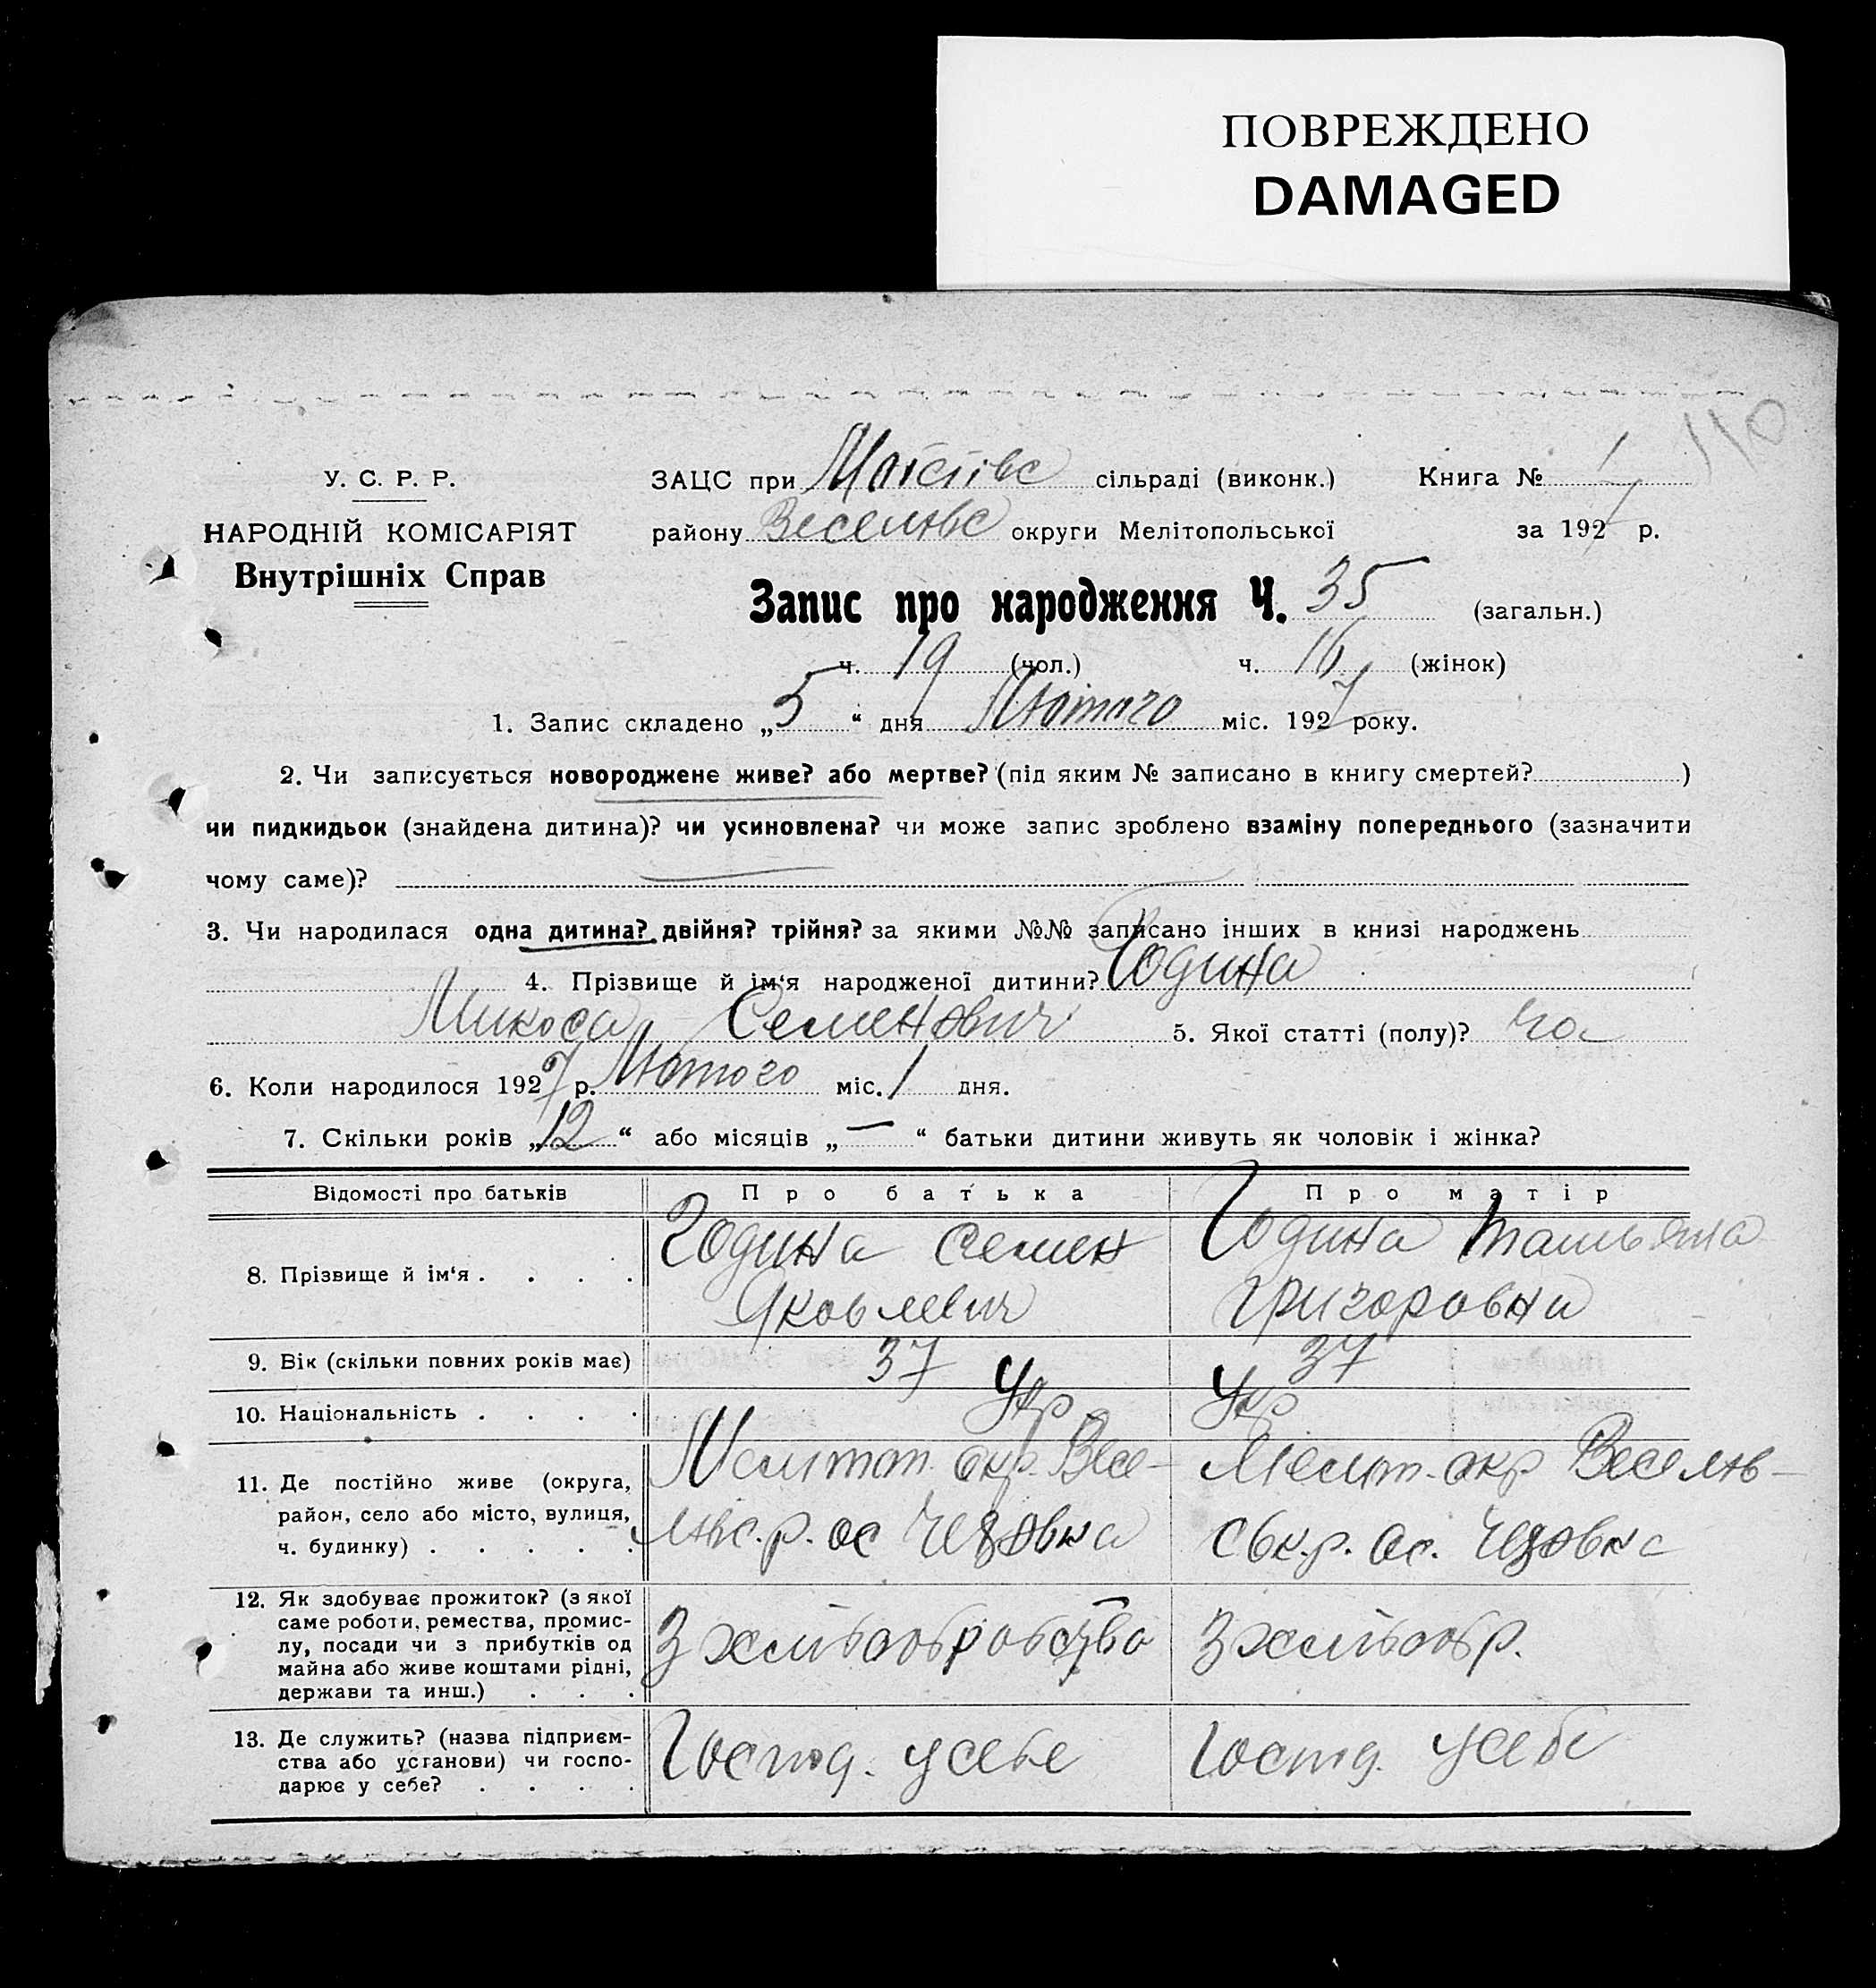 ПОВРЕЖДЕНО
DAMAGED
110
У. С. Р. Р.
НАРОДНІЙ КОМІСАРІЯТ
Внутрішніх Справ
ЗАЦС при сільраді (виконк.) Книга № 1
району Веселівс округи Мелітопольської за 1927 р.
Запис про народження Ч. 35 (загальн.)
ч. 19 (чол.) ч. 16 (жінок)
1. Запис складено „5“ дня Лютого міс. 1927 року.
2. Чи записується новороджене живе? або мертве? (під яким № записано в книгу смертей? )
чи пидкидьок (знайдена дитина)? чи усиновлена? чи може запис зроблено взаміну попереднього (зазначити
чому саме)?
3. Чи народилася одна дитина? двійня? трійня? за якими №№ записано інших в книзі народжень
4. Прізвище й ім‘я народженої дитини? Година
Микола Семенович 5. Якої статті (полу)? чол
6. Коли народилося 1927 р. Лютого міс. 1 дня.
7. Скільки років „12“ або місяців „—“ батьки дитини живуть як чоловік і жінка?
Відомості про батьків Про батька Про матір
8. Прізвище й ім‘я . . . . Година Семен Яковлевич Година Татьяна Григоровна
9. Вік (скільки повних років має) 37 37
10. Національність . . . . Укр Укр
11. Де постійно живе (округа,
район, село або місто, вулиця,
ч. будинку) . . . . .
Мелитоп. окр. Весе-
лівс.р. ос
Меліт. окр Веселів-
ськ.р. ос.
12. Як здобуває прожиток? (з якої
саме роботи, ремества, промис-
лу, посади чи з прибутків од
майна або живе коштами рідні,
держави та инш.) . . .
З хліборобства З хлібор.
13. Де служить? (назва підприєм-
ства або установи) чи госпо-
дарює у себе? . . . .
Господ. у себе Господ. у себе